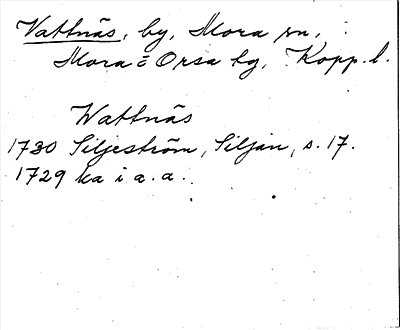 Vattnäs, by, Mora sn,
Mora o Orsa tg, Kopp. l.
Wattnäs
1730 Siljeström, Siljan, s. 17.
1729 ka i a. a.